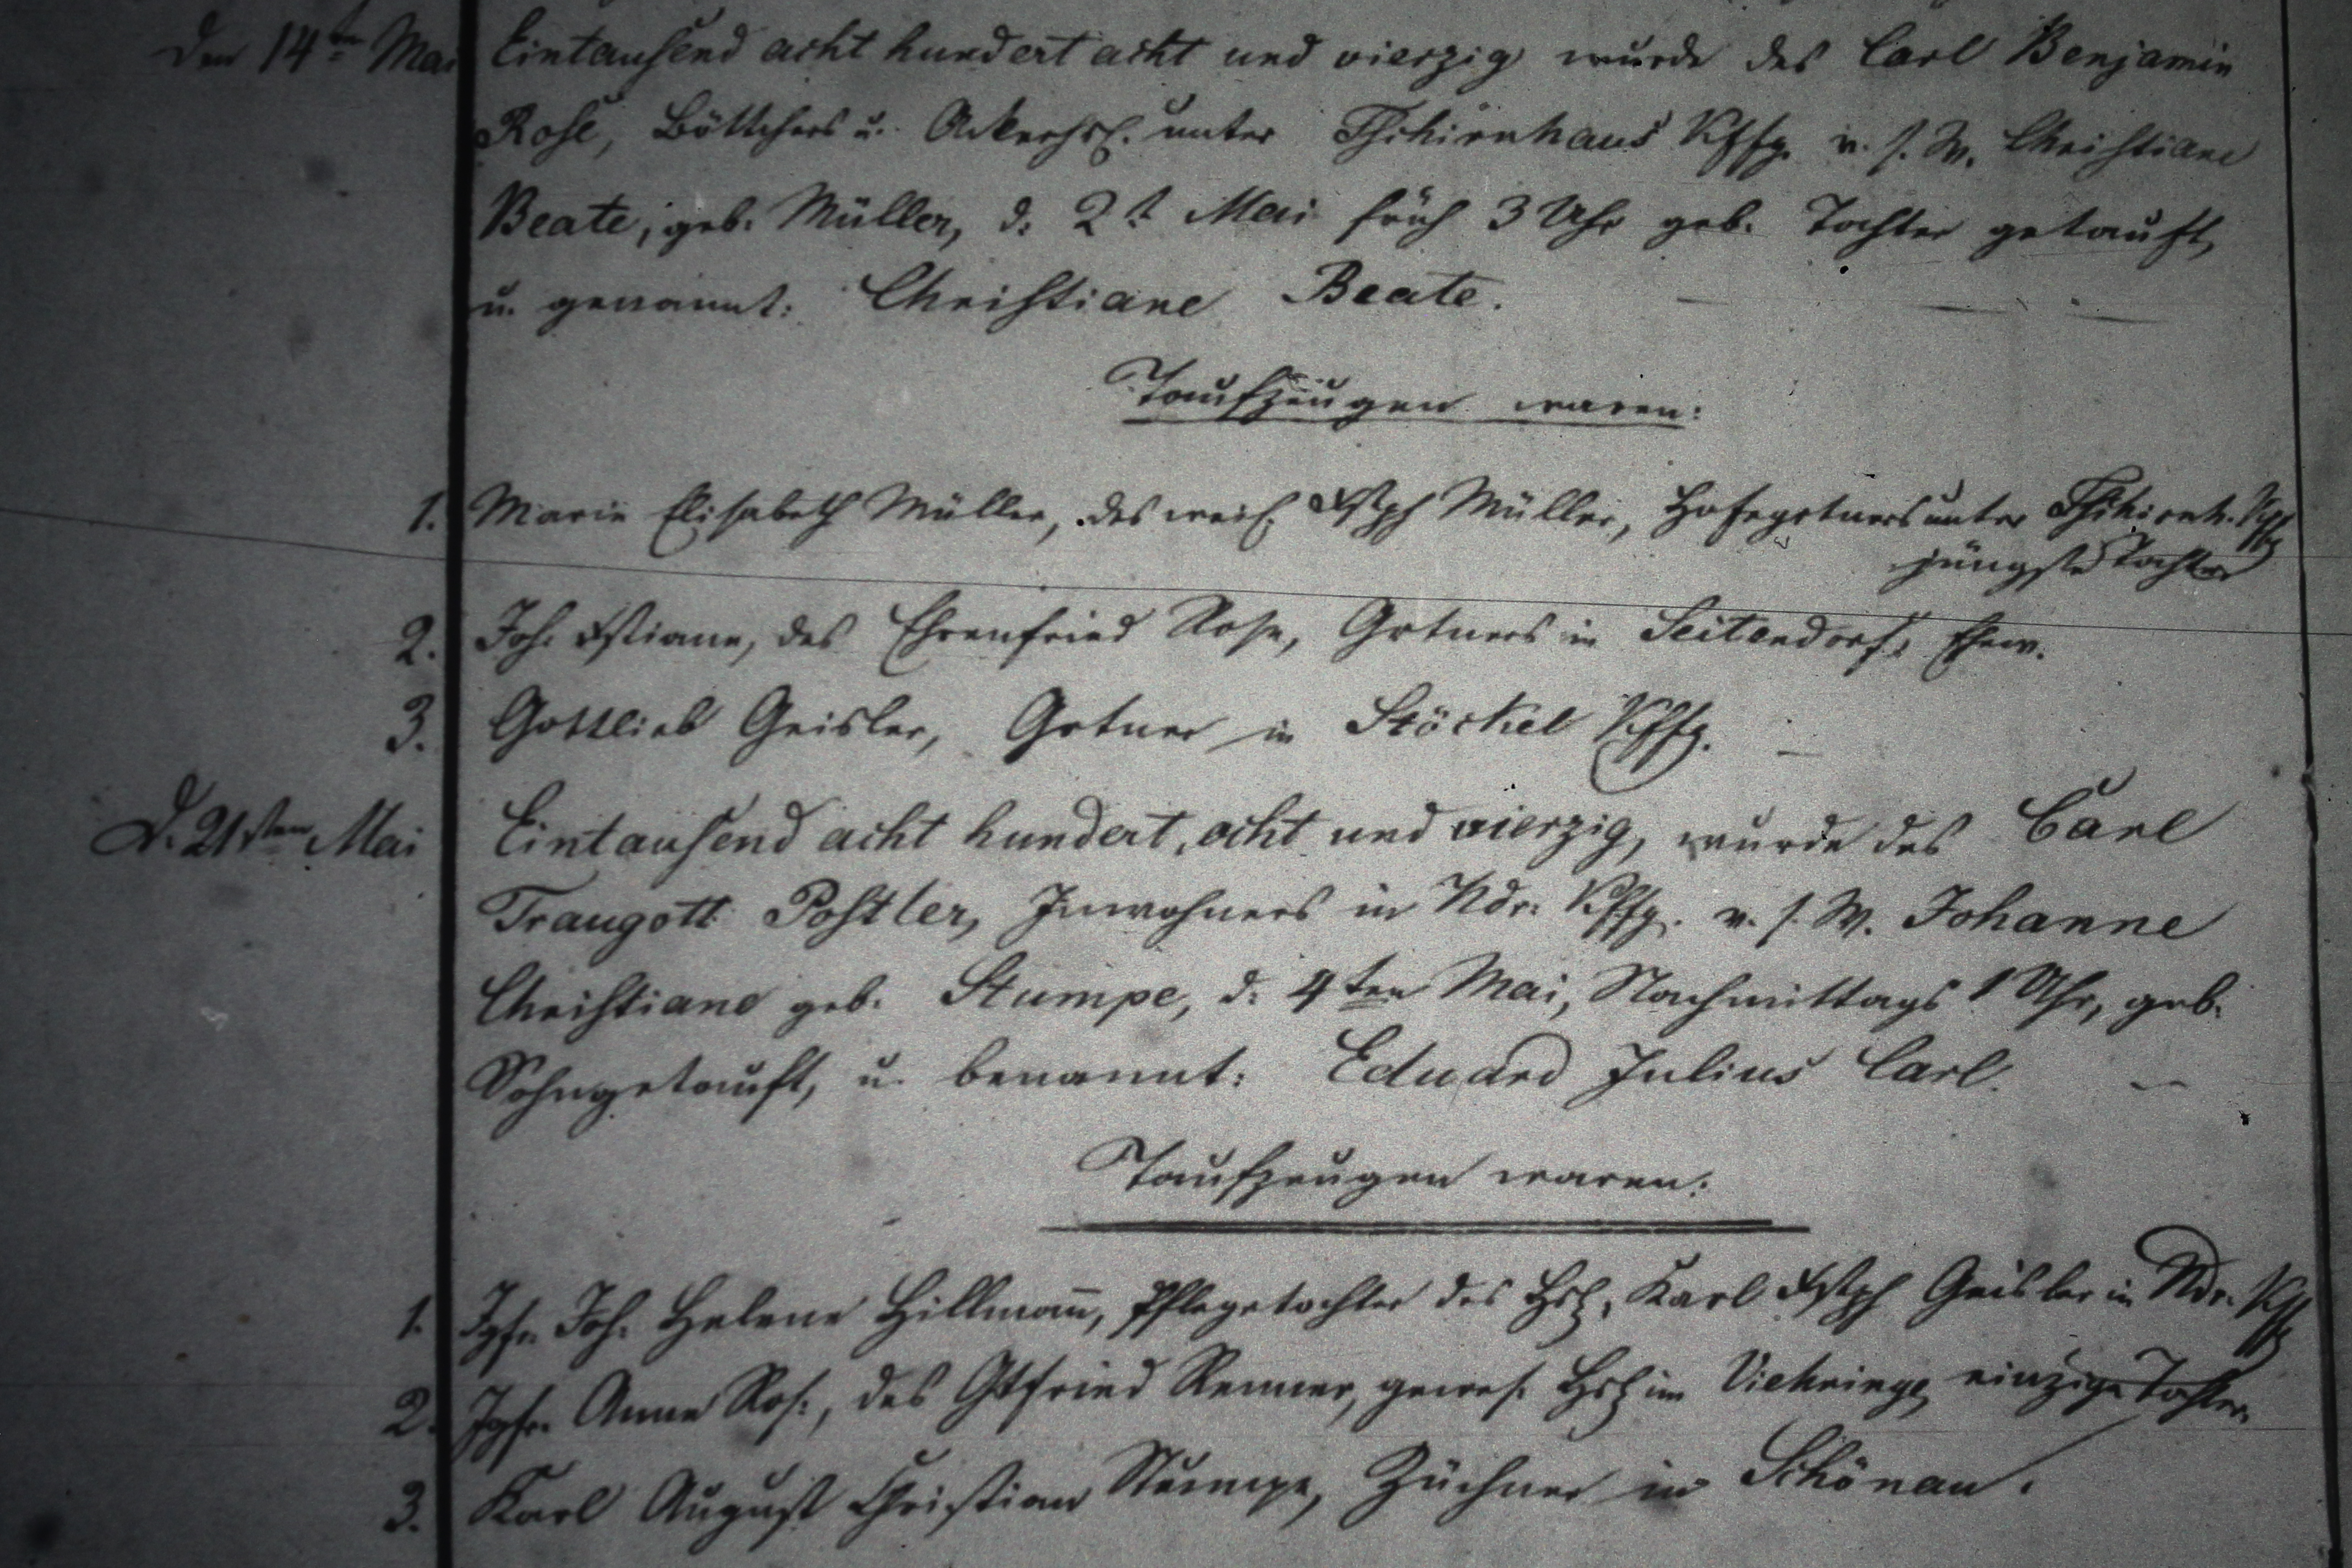 Den 14ten Mai Eintausend acht hundert acht und vierzig wurde des Carl Benjamin
Rose, Böttchers u. unter Tschirnhaus Kffg. v. s. W. Christiane
Beate, geb. Müller, d. 2t Mai früh 3 Uhr geb. Tochter getauft,
u. genannt: Christiane Beate.
Taufzeugen waren:
1. Marie Elisabeth Müller, des weil. Xstph Müller, Hofegrtners unter Tschirnh. Kffg
jüngste Tochter
2. Joh. Xstiane, des Ehrenfried Rose, Grtners in Seitendorf, Ehew.
3. Gottlieb Geisler, Grtner in Stöckel Kffg.
D. 21sten Mai Eintausend acht hundert, acht und vierzig, wurde des Carl
Traugott Postler, Inwohners in Ndr. Kffg. v. s. W. Johanne
Christiane geb. Stumpe, d. 4ten Mai, Nachmittags 1 Uhr, geb.
Sohn getauft, u. benannt: Eduard Julius Carl.
Taufzeugen waren:
1. Jgfr. Joh. Helene Hillmann, Pflegetochter des Hsl. Karl Xstph Geisler in Ndr. Kffg
2. Jgfr. Anne Ros., des Gtfried Renner, gewes. Hsl im Viehringe, einzige Tochter.
3. Karl August Christian Stumpe, Züchner in Schönau.